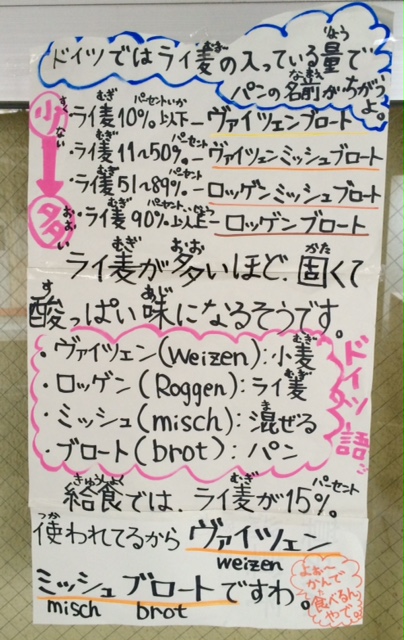 ドイツではライ麦の入っている量で
パンの名前がちがうよ。
少 ・ライ麦10%以下―ヴァイツェンブロート
・ライ麦11~50%―ヴァイツェンミッシュブロート
・ライ麦51~89%―ロッゲンミッシュブロート
多 ・ライ麦90%以上―ロッゲンブロート
ライ麦が多いほど、固くて
酸っぱい味になるそうです。
・ヴァイツェン(weizen):小麦
・ロッゲン(Roggen):ライ麦
・ミッシュ(misch):混ぜる
・ブロート(brot):パン
ドイツ語
給食では、ライ麦が15%
使われてるから ヴァイツェン
weizen
ミッシュブロートですわ。
misch brot
よぉ~
かんで
食べるん
やで。